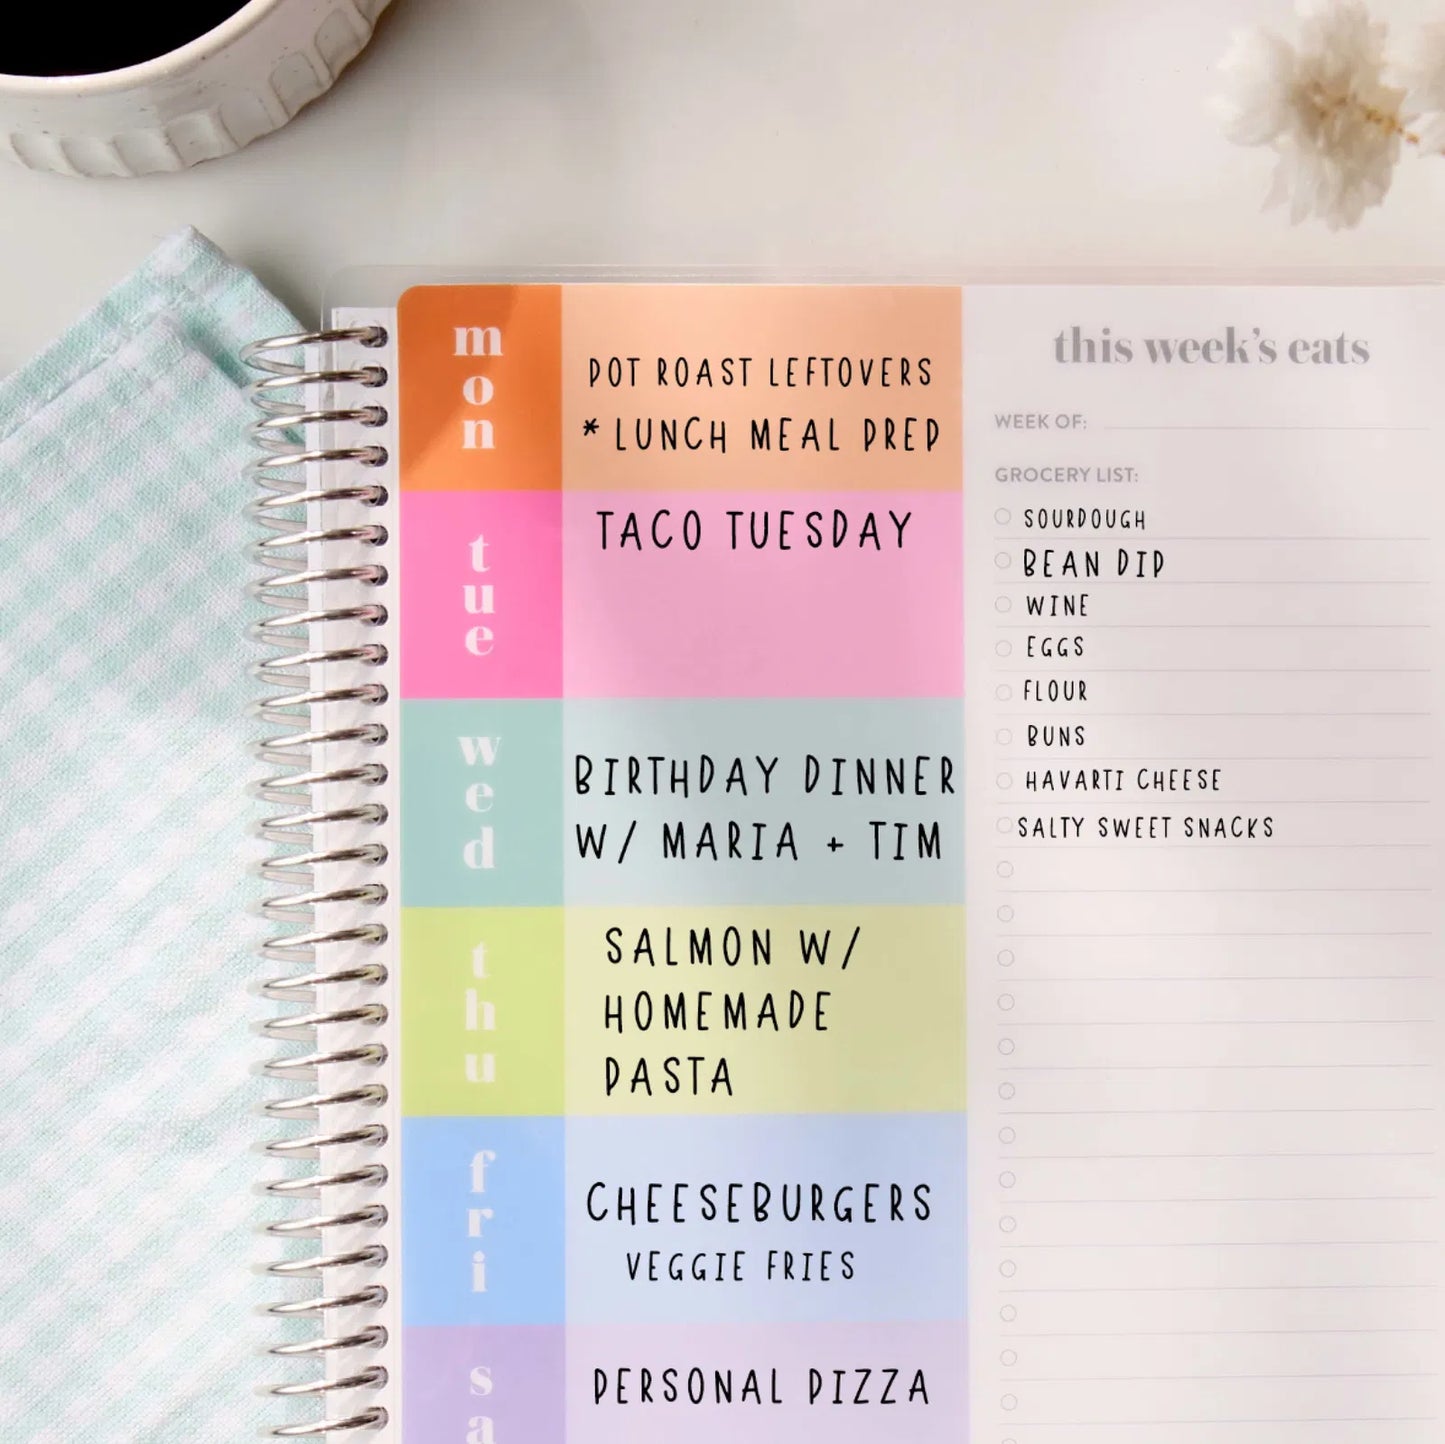 mon
POT ROAST LEFTOVERS
* LUNCH MEAL PREP
tue
TACO TUESDAY
wed
BIRTHDAY DINNER
W/ MARIA + TIM
thu
SALMON W/
HOMEMADE
PASTA
fri
CHEESEBURGERS
VEGGIE FRIES
sa
PERSONAL PIZZA
this week's eats
WEEK OF:
GROCERY LIST:
SOURDOUGH
BEAN DIP
WINE
EGGS
FLOUR
BUNS
HAVARTI CHEESE
SALTY SWEET SNACKS